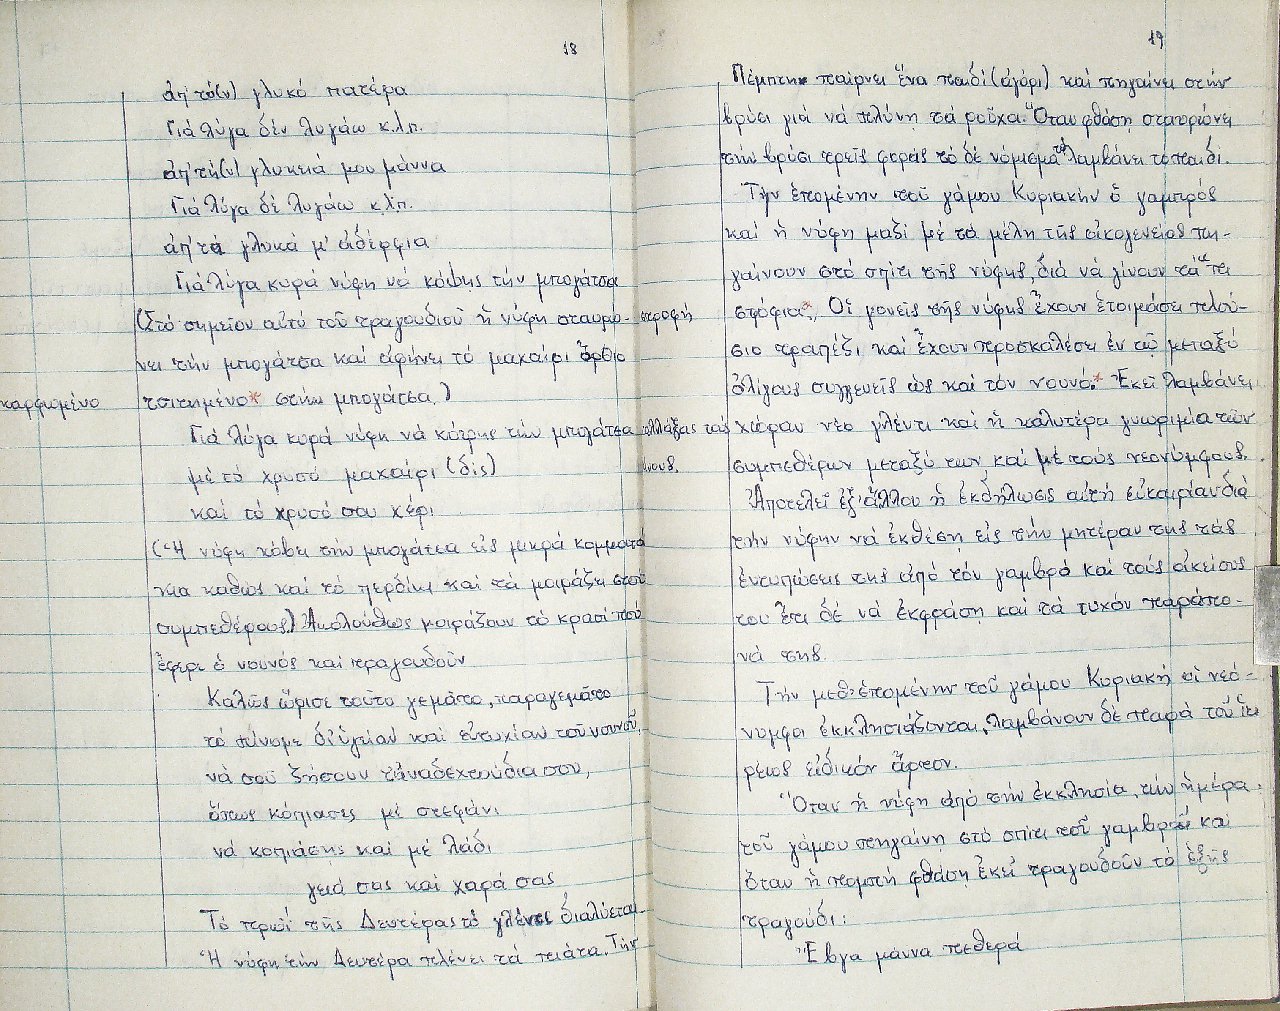 18
ἀπ' τό(ν) γλυκό πατέρα
Γιά λύγα δέν λυγάω κ.λ.π.
ἀπ' τή(ν) γλυκειά μου μάννα
Γιά λύγα δέ λυγάω κ.λ.π.
ἀπ' τά γλυκά μ' ἀδέρφια
Γιά λύγα κυρά νύφη νά κόψης τήν μπογάτσα
(Στό σημεῖον αὐτό τοῦ τραγουδιοῦ ἡ νύφη σταυρώ-
νει τήν μπογάτσα καί ἀφήνει τό μαχαίρι ὄρθιο
καρφωμένο
τσιτημένο* στήν μπογάτσα)
Γιά λύγα κυρά νύφη νά κόψης τήν μπογάτσα
μέ τό χρυσό μαχαίρι (δίς)
καί τό χρυσό σου χέρι
(Ἡ νύφη κόβει τήν μπογάτσα εἰς μικρά κομματά
κια καθώς καί τό περδίκι καί τά μοιράζει στούς
συμπεθέρους) Ἀκολούθως μοιράζουν τό κρασί πού
ἔφερε ὁ νουνός καί τραγουδοῦν
Καλῶς ὥρισε τοῦτο γεμᾶτο, παραγεμᾶτο
τό πίνομε δι' ὑγείαν καί εὐτυχίαν τοῦ νουνοῦ,
νά σοῦ ζήσουν τ' ἀναδεχτούδια σου,
ὅπως κόπιασες μέ στεφάνι
νά κοπιάσης καί μέ λάδι
γειά σας καί χαρά σας
Τό πρωΐ τῆς Δευτέρας τό γλέντι διαλύεται.
Ἡ νύφη τήν Δευτέρα πλένει τά πιάτα. Τήν
στροφή
ἀλλάξας τούς
19
Πέμπτη παίρνει ἕνα παιδί (ἀγόρι) καί πηγαίνει στήν
βρύσι γιά νά πλύνη τά ροῦχα. Ὅταν φθάση σταυρώνει
τήν βρύσι τρεῖς φορές τό δέ νόμισμα τό λαμβάνει τό παιδί.
Τήν ἑπομένην τοῦ γάμου Κυριακήν ὁ γαμπρός
καί ἡ νύφη μαζί μέ τά μέλη τῆς οἰκογενείας πη-
γαίνουν στό σπίτι τῆς νύφης, διά νά γίνουν τά "πι
στρόφια"*. Οἱ γονεῖς τῆς νύφης ἔχουν ἑτοιμάσει πλού-
σιο τραπέζι καί ἔχουν προσκαλέσει ἐν τῷ μεταξύ
ὀλίγους συγγενεῖς ὡς καί τόν νουνό.* Ἐκεῖ λαμβάνει
χώραν νέο γλέντι καί ἡ καλυτέρα γνωριμία τῶν
συμπεθέρων μεταξύ των καί μέ τούς νεονύμφους.
Ἀποτελεῖ ἐξ' ἄλλου ἡ ἐκδήλωσις αὐτή εὐκαιρίαν διά
τήν νύφην νά ἐκθέση εἰς τήν μητέραν της τάς
ἐντυπώσεις της ἀπό τόν γαμβρό καί τούς οἰκείους
του ἔτι δέ νά ἐκφράση καί τά τυχόν παράπο-
νά της.
Τήν μεθεπομένην τοῦ γάμου Κυριακή οἱ νεό-
νυμφοι ἐκκλησιάζονται, λαμβάνουν δέ παρά τοῦ ἱε
ρέως εἰδικόν ἄρτον.
Ὅταν ἡ νύφη ἀπό τήν ἐκκλησία, τήν ἡμέρα
τοῦ γάμου πηγαίνη στό σπίτι τοῦ γαμβροῦ καί
ὅταν ἡ πομπή φθάση ἐκεῖ τραγουδοῦν τό ἑξῆς
τραγούδι:
Ἔβγα μάννα πεθερά